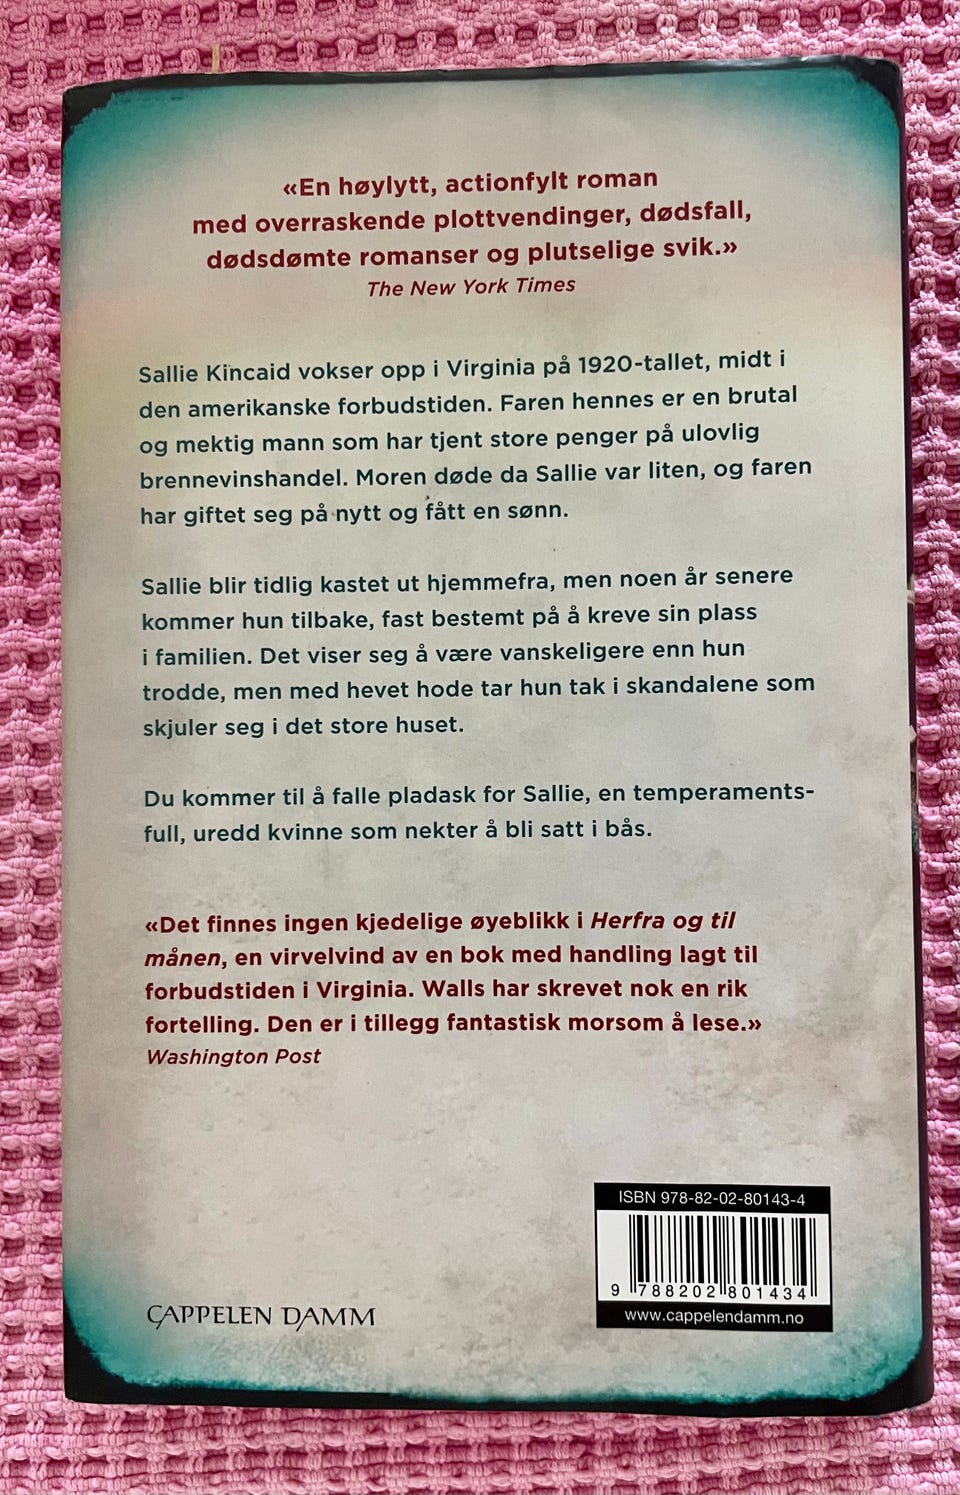 «En høylytt, actionfylt roman
med overraskende plottvendinger, dødsfall,
dødsdømte romanser og plutselige svik.»
The New York Times
Sallie Kincaid vokser opp i Virginia på 1920-tallet, midt i
den amerikanske forbudstiden. Faren hennes er en brutal
og mektig mann som har tjent store penger på ulovlig
brennevinshandel. Moren døde da Sallie var liten, og faren
har giftet seg på nytt og fått en sønn.
Sallie blir tidlig kastet ut hjemmefra, men noen år senere
kommer hun tilbake, fast bestemt på å kreve sin plass
i familien. Det viser seg å være vanskeligere enn hun
trodde, men med hevet hode tar hun tak i skandalene som
skjuler seg i det store huset.
Du kommer til å falle pladask for Sallie, en temperaments-
full, uredd kvinne som nekter å bli satt i bås.
«Det finnes ingen kjedelige øyeblikk i Herfra og til
månen, en virvelvind av en bok med handling lagt til
forbudstiden i Virginia. Walls har skrevet nok en rik
fortelling. Den er i tillegg fantastisk morsom å lese.»
Washington Post
ISBN 978-82-02-80143-4
9 788202 801434
www.cappelendamm.no
CAPPELEN DAMM